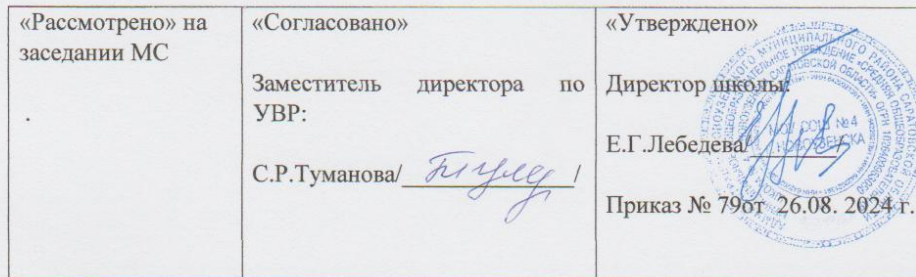 «Рассмотрено» на
заседании МС
.
«Согласовано»
Заместитель директора по
УВР:
С.Р.Туманова/ /
«Утверждено»
Директор школы:
Е.Г.Лебедева/ /
Приказ № 79от 26.08. 2024 г.
МОУ СОШ №4
НОВОУЗЕНСКА